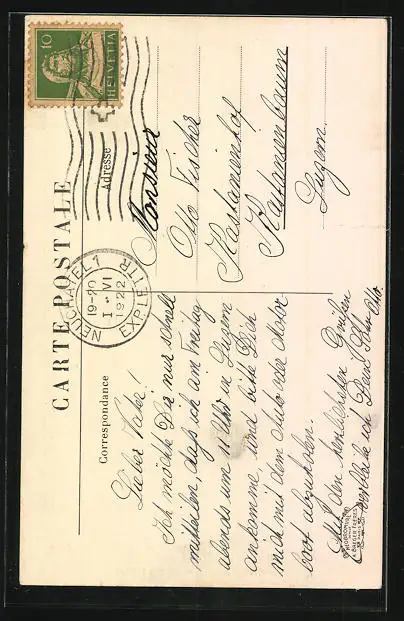 CARTE POSTALE
Correspondance
Adresse
10
HELVETIA
NEUCHATEL 1
19-20
1. VI
1922
EXP. LETTR.
Lieber Vater!
Ich möchte Dir nur schnell
mitteilen, daß ich am Freitag
abends um Uhr in Luzern
ankomme, und bitte Dich
mich mit dem Auto oder Motor-
boot abzuholen.
Mit den herzlichsten Grüßen
verbleibe ich Dein Sohn Otto.
Monsieur
Otto Fischer
Kastanienhof
Kastanienbaum
Luzern.